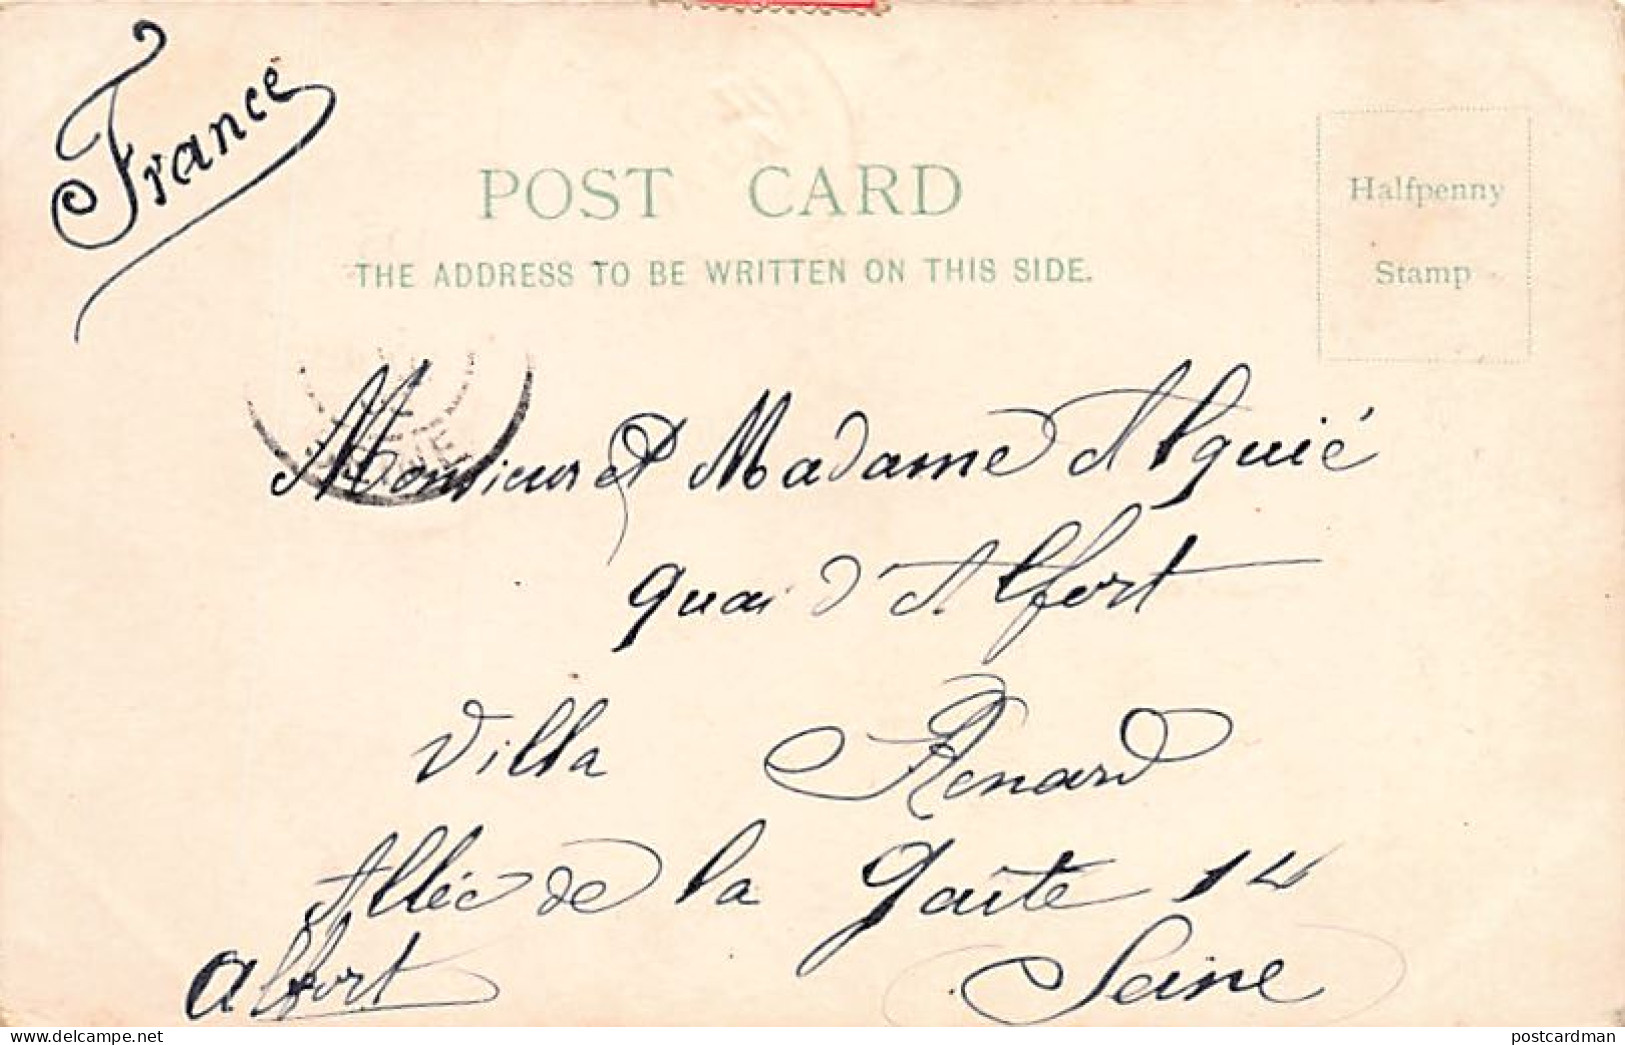 France
POST CARD
THE ADDRESS TO BE WRITTEN ON THIS SIDE.
Halfpenny
Stamp
Monsieur et Madame Alquié
quai d'Alfort
Villa Renard
Allée de la Gaîté 14
Alfort Seine
www.delcampe.net
postcardman